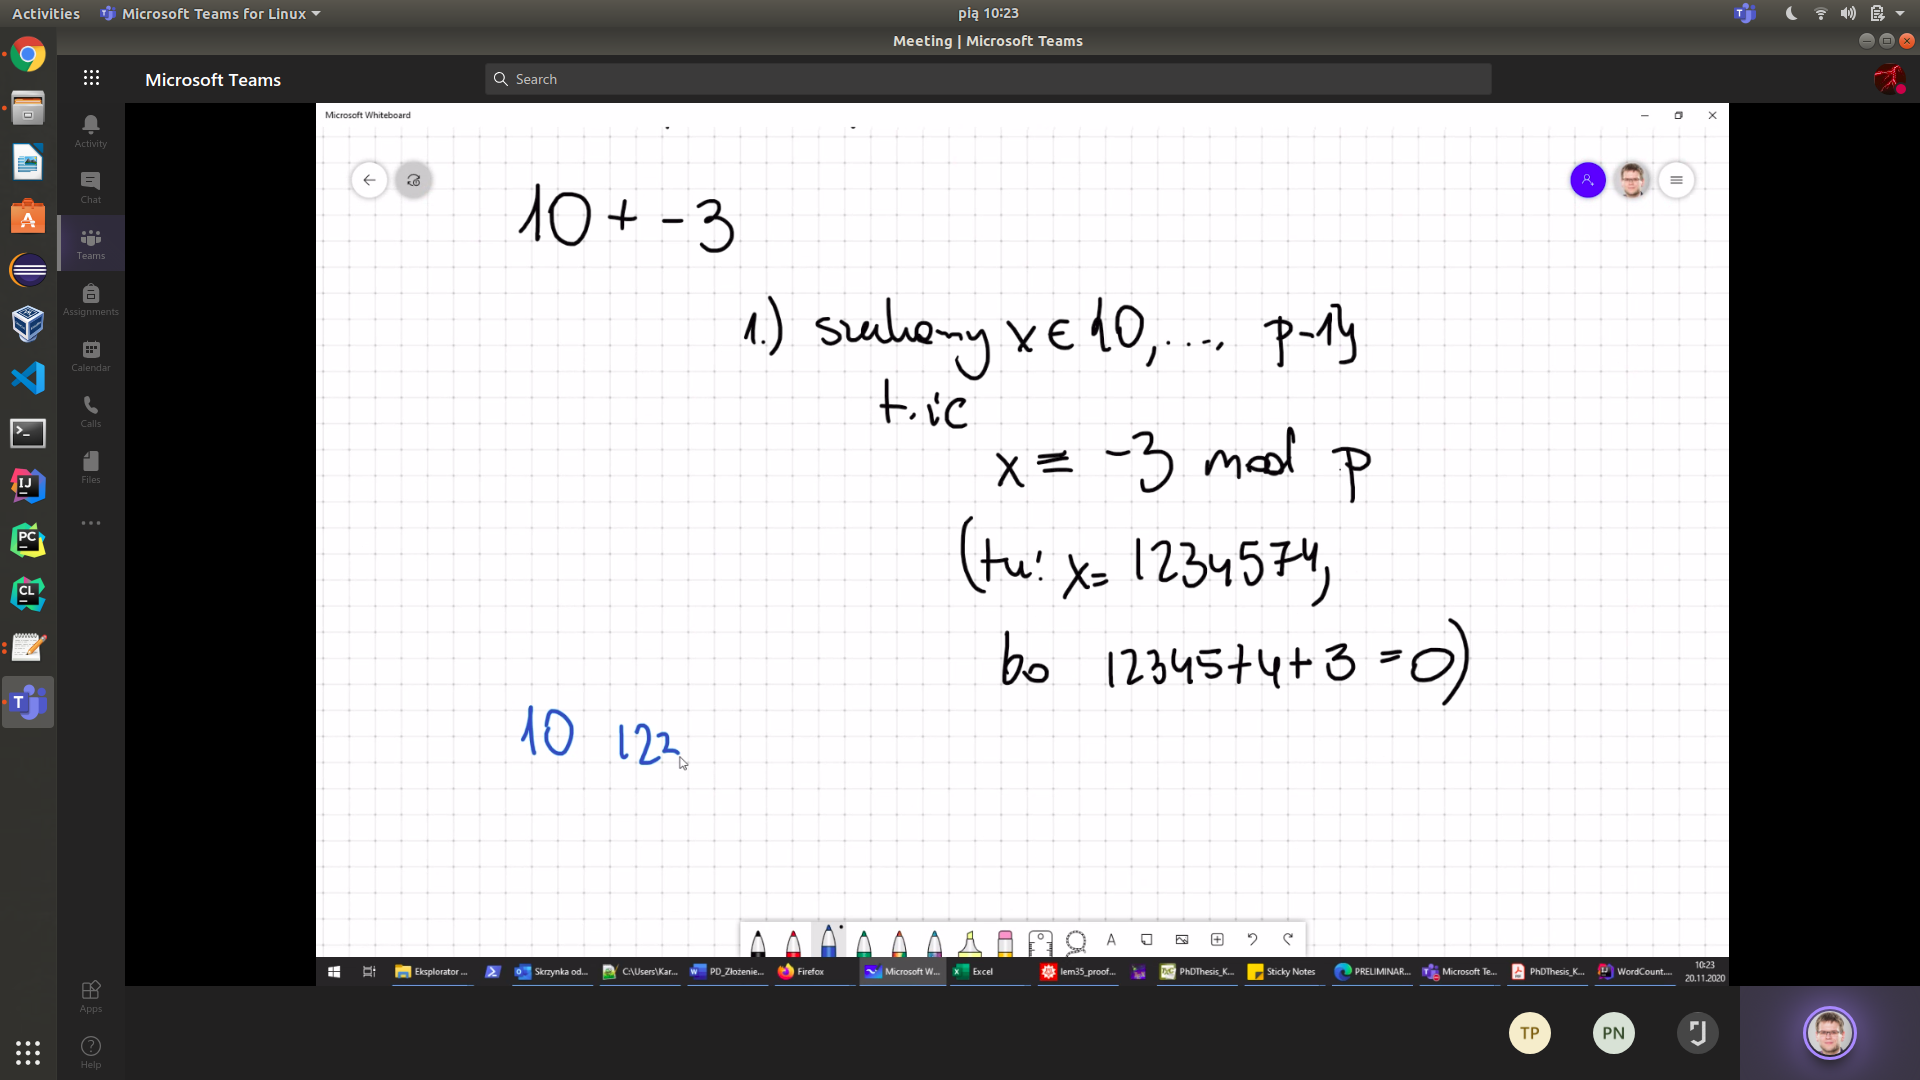 Activities
Microsoft Teams for Linux
pią 10:23
Meeting | Microsoft Teams
Microsoft Teams
Search
Activity
Chat
Teams
Assignments
Calendar
Calls
Files
Apps
Help
Microsoft Whiteboard
10 + -3
1.) szukamy x ∈ {0, ..., p-1}
t. że
x ≡ -3 mod p
(tu: x = 1234574,
bo 1234574 + 3 = 0)
10 122
Eksplorator ...
Skrzynka od...
C:\Users\Kar...
PD_Złożenie...
Firefox
Microsoft W...
Excel
lem35_proof...
PhDThesis_K...
Sticky Notes
PRELIMINAR...
Microsoft Te...
PhDThesis_K...
WordCount....
10:23
20.11.2020
TP
PN